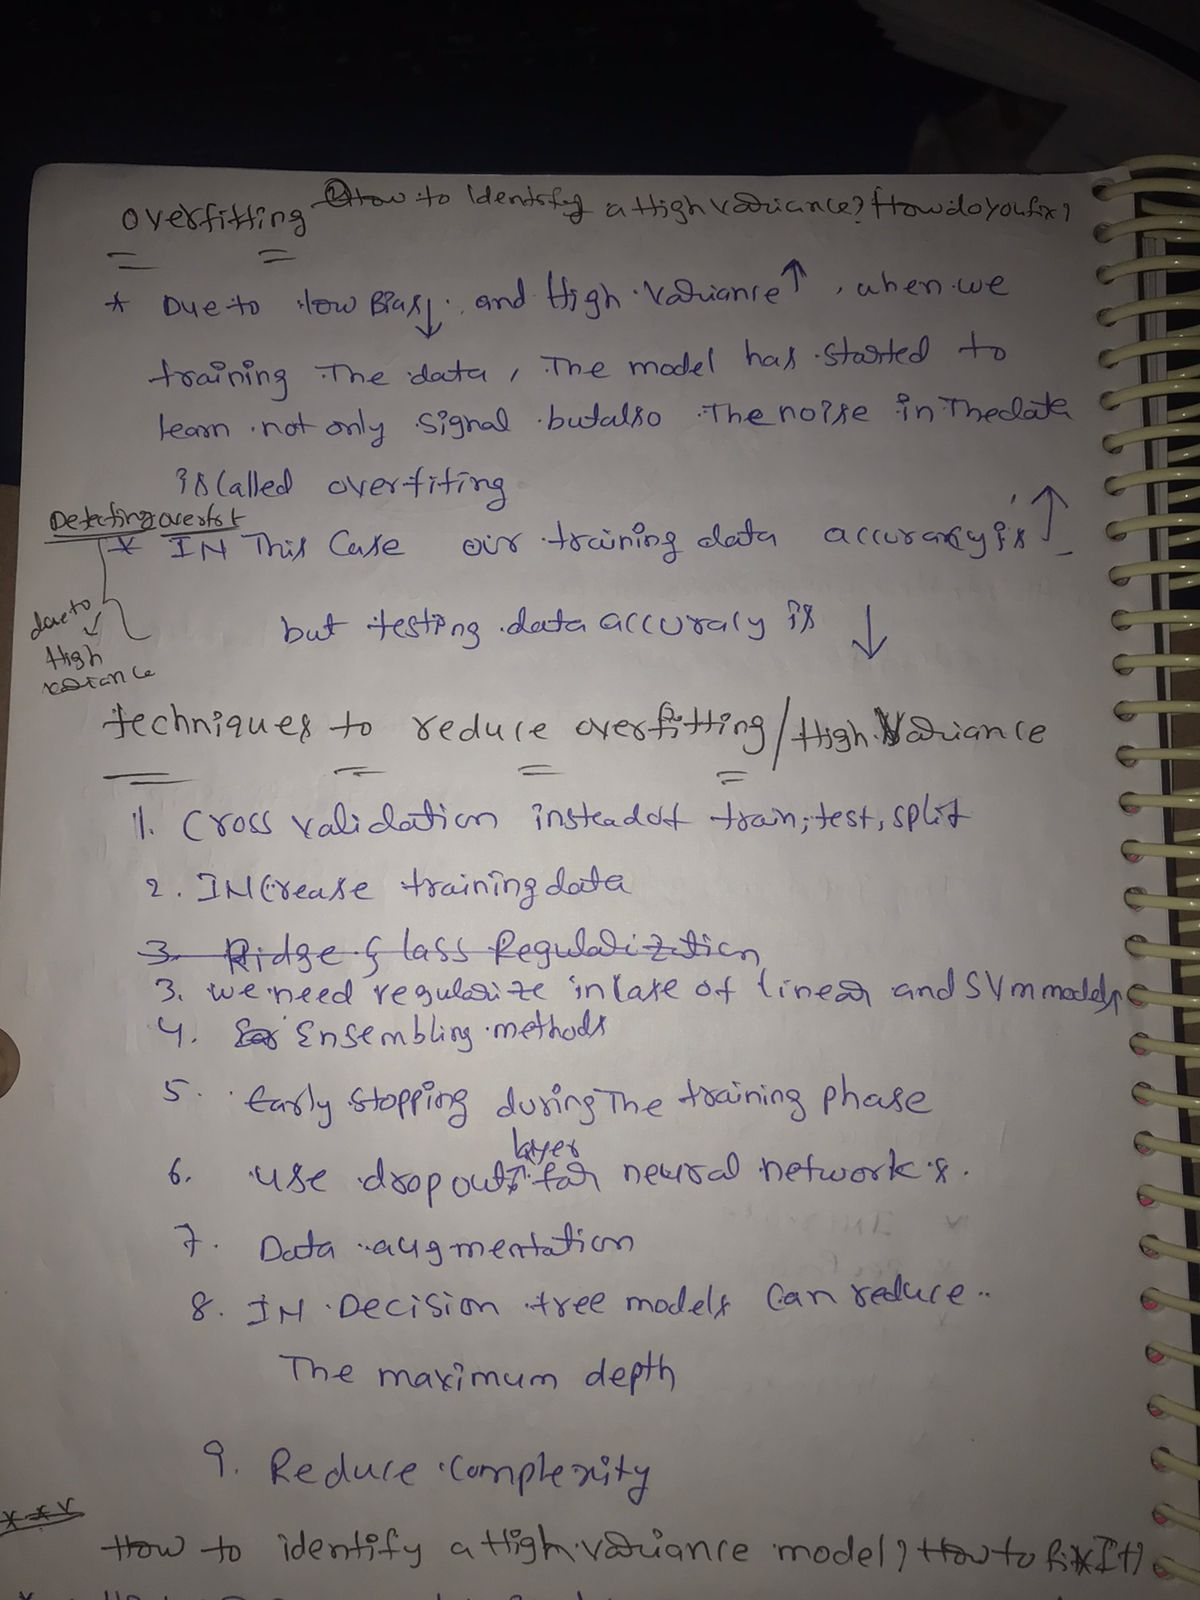 overfitting How to Identify a High variance? How do you fix?
* Due to low Bias ↓ and High Variance ↑ , when we
training The data, The model has started to
learn not only signal but also The noise in The data
is called overfiting
Detecting overfit
* IN This Case our training data accuracy is ↑
due to
High
variance
but testing data accuracy is ↓
techniques to reduce overfitting / High Variance
1. Cross validation instead of train, test, split
2. INCrease training data
3. Ridge & lass Regularization
3. we need regularize incase of linear and SVM models
4. Ensembling methods
5. Early stopping during The training phase
layer
6. use dropouts for neural networks.
7. Data augmentation
8. IN Decision tree models Can reduce
The maximum depth
9. Reduce complexity
How to identify a High variance model? How to fix It?